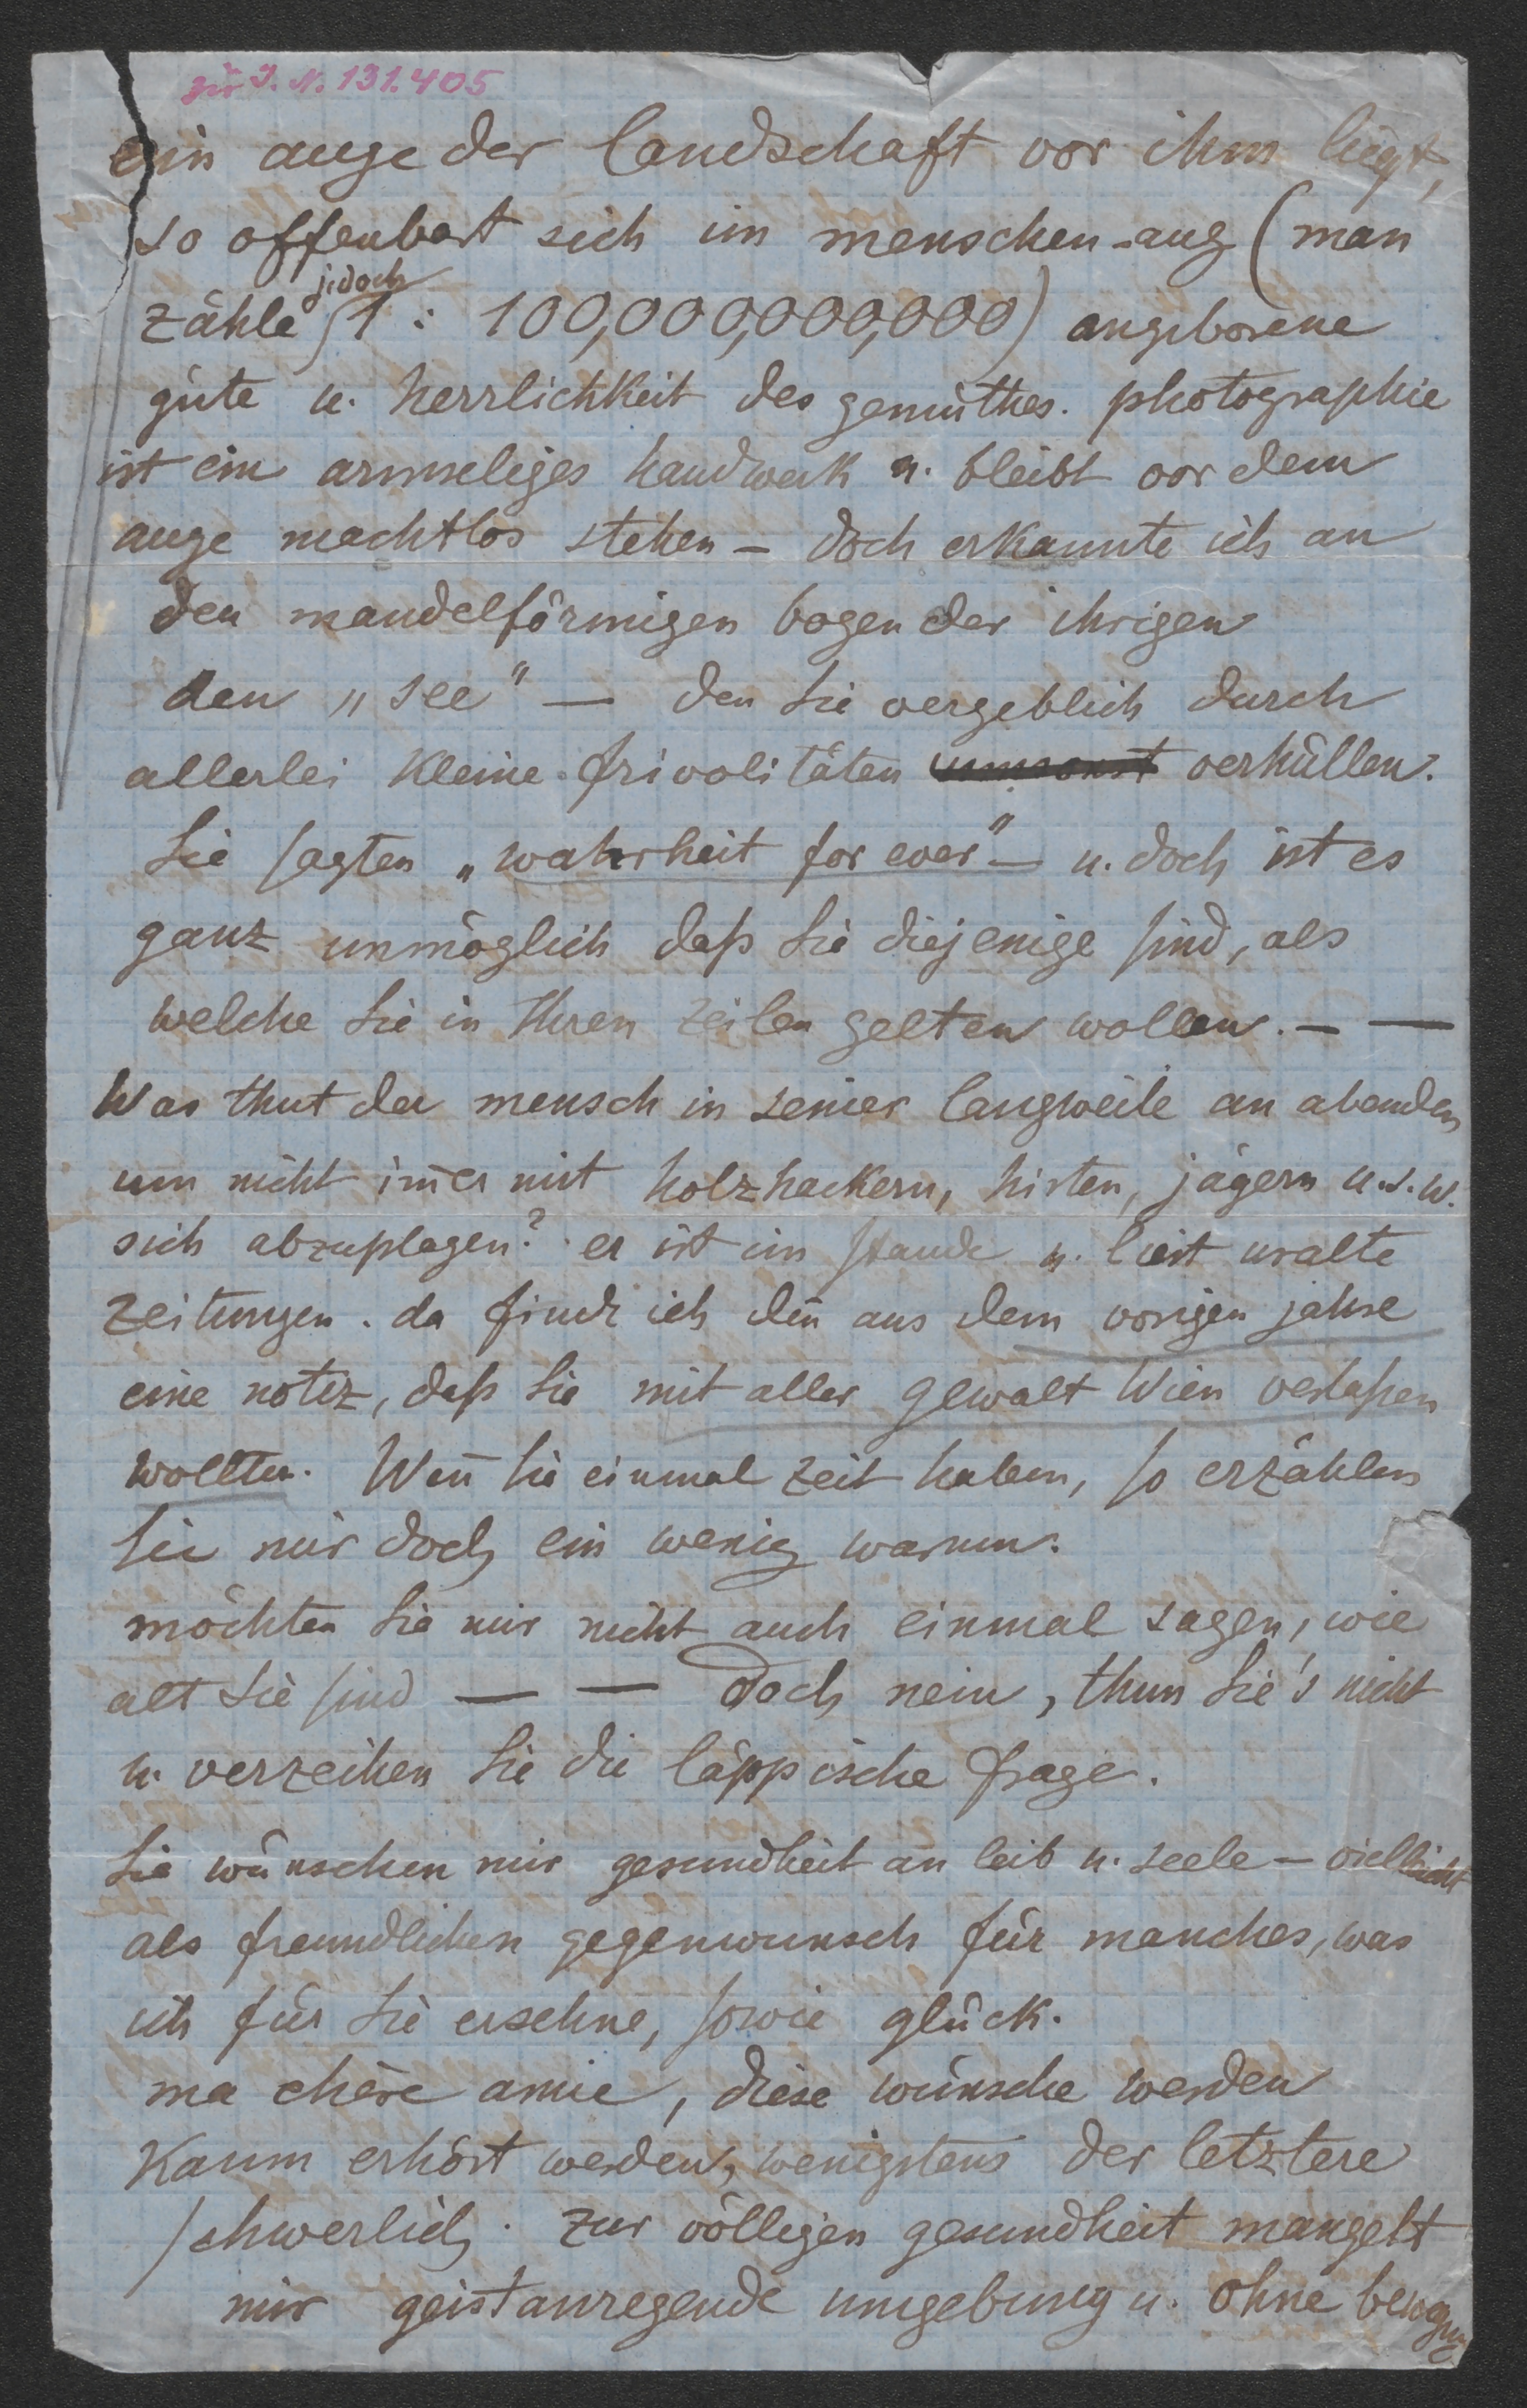 zu I. N. 131.405
ein auge der landschaft vor ihm liegt,
so offenbart sich im menschen-aug (man
zähle jedoch 1 : 100,000,000,000) angeborene
güte u. herrlichkeit des gemüthes. photographie
ist ein armseliges handwerk u. bleibt vor dem
auge machtlos stehen – doch erkannte ich an
den mandelförmigen bogen der ihrigen
den „see" — den Sie vergeblich durch
allerlei kleine frivolitäten umsonst verhüllen.
Sie sagten „wahrheit for ever" – u. doch ist es
ganz unmöglich daß Sie diejenige sind, als
welche Sie in Ihren zeilen gelten wollen. – —
Was thut der mensch in seiner langweile an abenden
um nicht im̄er mit holzhackern, hirten, jägern u.s.w.
sich abzuplagen? er ist im stande u. liest uralte
zeitungen. da finde ich deñ aus dem vorigen jahre
eine notiz, daß Sie mit aller gewalt Wien verlaßen
wollten. Weñ Sie einmal zeit haben, so erzählen
Sie mir doch ein wenig warum.
möchten Sie mir nicht auch einmal sagen, wie
alt Sie sind — — doch nein, thun Sie's nicht
u. verzeihen Sie die läppische frage.
Sie wünschen mir gesundheit an leib u. seele – vielleicht
als freundlichen gegenwunsch für manches, was
ich für Sie ersehne, sowie glück.
ma chère amie, diese wünsche werden
kaum erhört werden, wenigstens der letztere
schwerlich. zur völligen gesundheit mangelt
mir geistanregende umgebung u. ohne bewegung